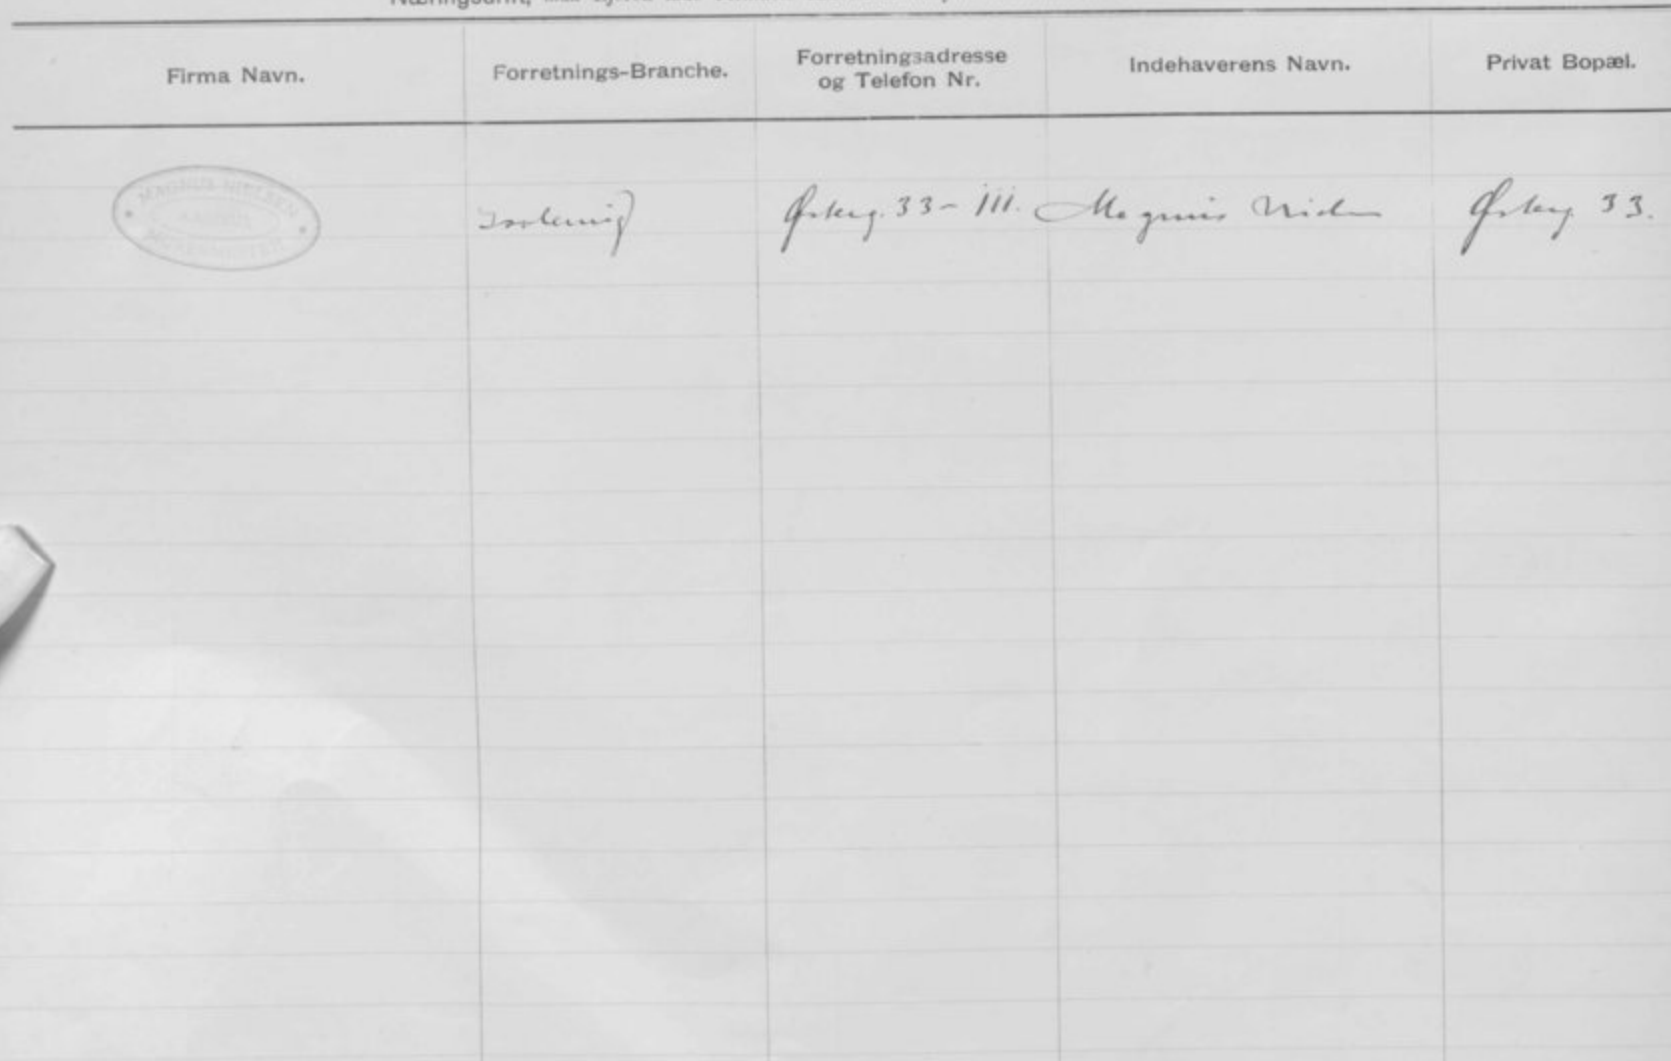 Firma Navn.
Forretnings-Branche.
Forretningsadresse
og Telefon Nr.
Indehaverens Navn.
Privat Bopæl.
MAGNUS NIELSEN
AARHUS
Østerg. 33 - III.
Magnus Nielsen
Østerg. 33.